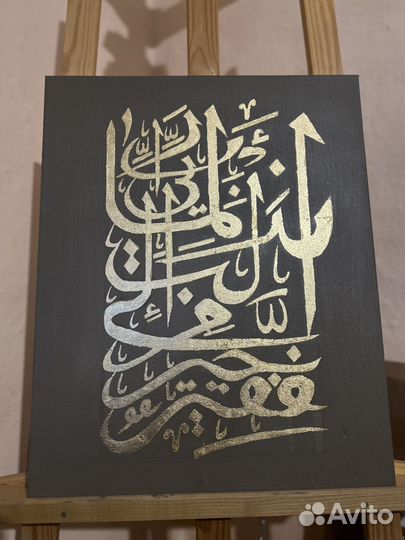 رَبِّ إِنِّي لِمَا أَنزَلْتَ إِلَيَّ مِنْ خَيْرٍ فَقِيرٌ
Avito